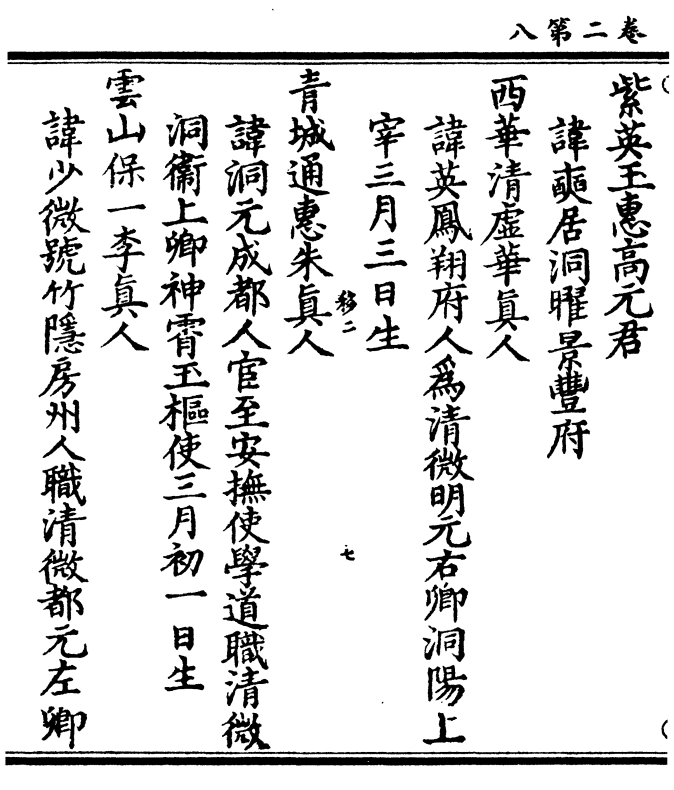 卷二第八
紫英玉惠高元君
諱奭居洞曜景豐府
西華清虛華眞人
諱英鳳翔府人爲清微明元右卿洞陽上
宰三月三日生
移二
七
青城通惠朱眞人
諱洞元成都人官至安撫使學道職清微
洞衞上卿神霄玉樞使三月初一日生
雲山保一李眞人
諱少微號竹隱房州人職清微都元左卿